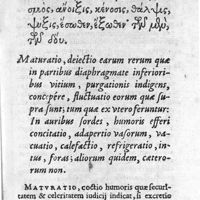 σμὸς, ἄνοιξις, κένοσις, θάλψις,
ψύξις, ἔσωθεν, ἔξωθεν
Maturatio, deiectio earum rerum quæ
in partibus diaphragmate inferiori-
bus vitium, purgationis indigens,
concepere, fluctuatio eorum quæ su-
pra sunt; tum quæ extero feruntur.
In auribus sordes, humoris efferi
concitatio, adapertio vasorum, va-
cuatio, calefactio, refrigeratio, in-
tus, foras; aliorum quidem, cætero-
rum non.
MATVRATIO, coctio humoris quæ securi-
tatem & celeritatem iudicij indicat, si excretio